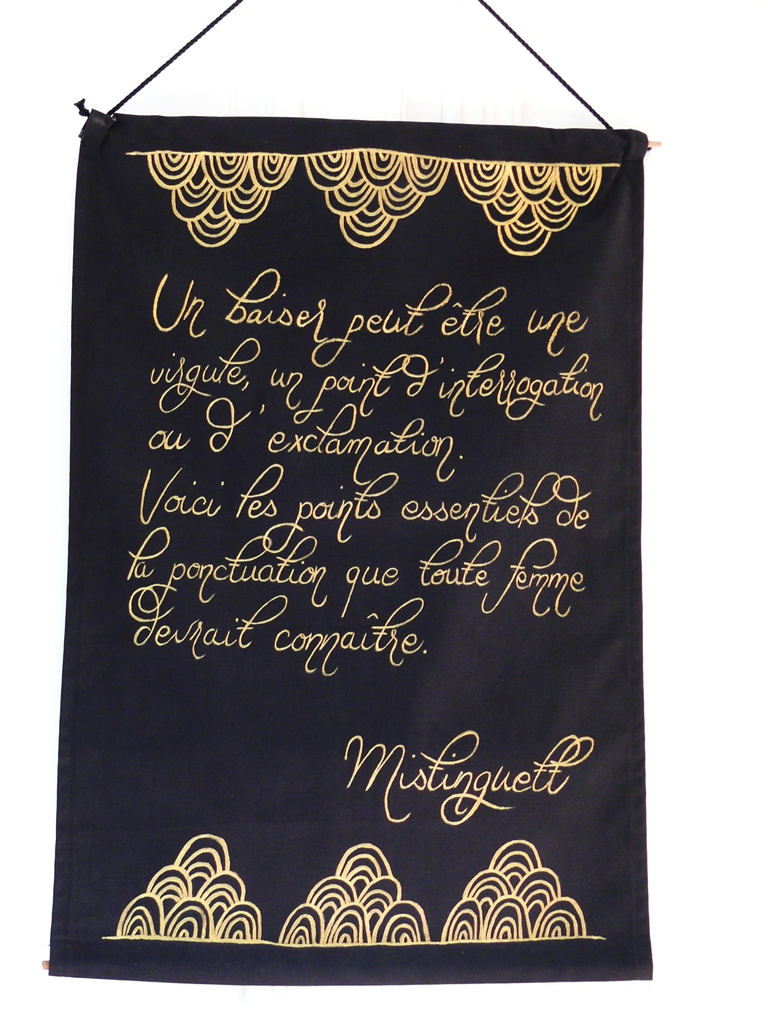 Un baiser peut être une
virgule, un point d'interrogation
ou d'exclamation.
Voici les points essentiels de
la ponctuation que toute femme
devrait connaître.
Mistinguett